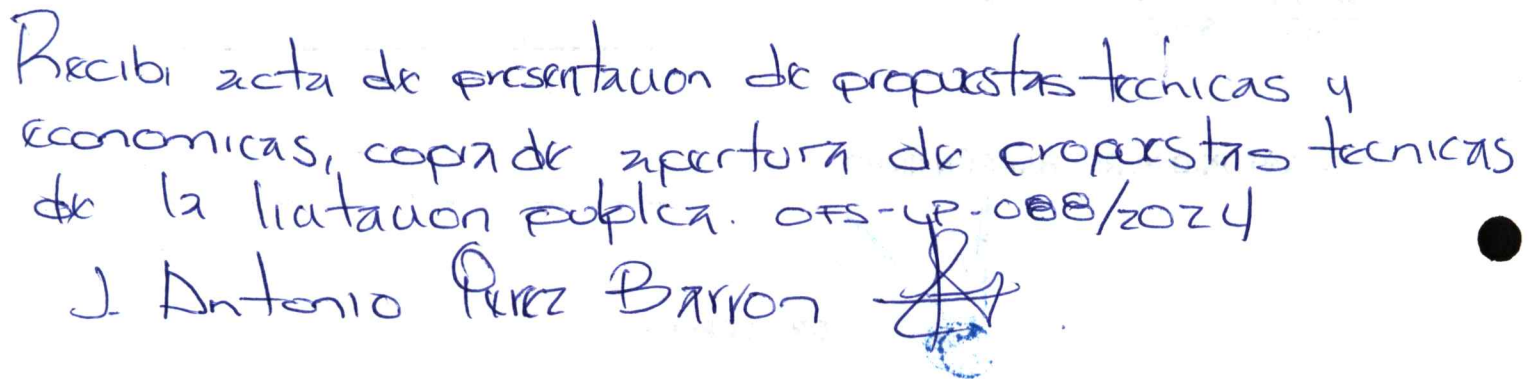 Recibi acta de presentacion de propuestas tecnicas y
economicas, copia de apertura de propuestas tecnicas
de la licitacion publca. OFS-LP-088/2024
J. Antonio Perez Barron